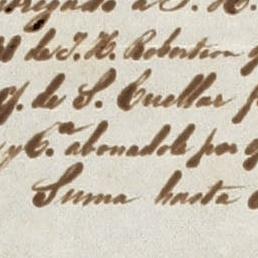 á J. H.
de J. H. Robertson
de S. Cuellar
y C.ª abonadole por
Suma hasta